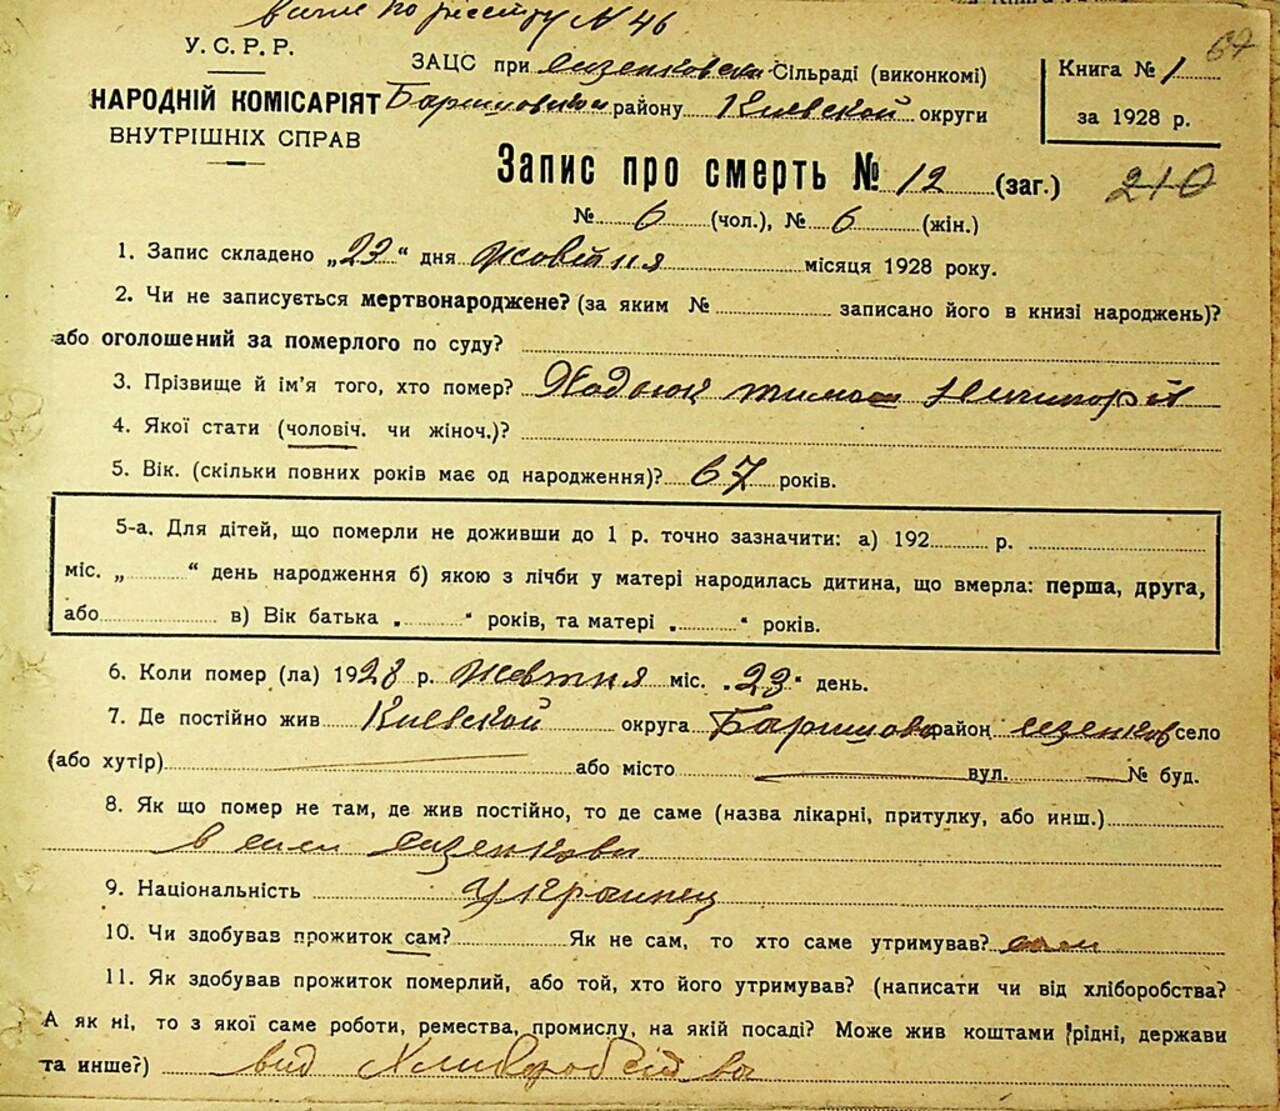 № 46
67
У. С. Р. Р.
ЗАЦС при Сизенковски Сільраді (виконкомі)
Книга № 1
НАРОДНІЙ КОМІСАРІЯТ
району Киевской округи
ВНУТРІШНІХ СПРАВ
за 1928 р.
Запис про смерть № 12 (заг.) 210
№ 6 (чол.), № 6 (жін.)
1. Запис складено „23“ дня жовтня місяця 1928 року.
2. Чи не записується мертвонароджене? (за яким № записано його в книзі народжень)?
або оголошений за померлого по суду?
3. Прізвище й ім'я того, хто помер?
4. Якої стати (чоловіч. чи жіноч.)?
5. Вік. (скільки повних років має од народження)? 67 років.
5-а. Для дітей, що померли не доживши до 1 р. точно зазначити: а) 192 р.
міс. „ “ день народження б) якою з лічби у матері народилась дитина, що вмерла: перша, друга,
або в) Вік батька „ “ років, та матері „ “ років.
6. Коли помер (ла) 1928 р. жовтня міс. „23“ день.
7. Де постійно жив Киевской округа район село
(або хутір) або місто вул. № буд.
8. Як що помер не там, де жив постійно, то де саме (назва лікарні, притулку, або инш.)
в сили Сизенкови
9. Національність украинец
10. Чи здобував прожиток сам? Як не сам, то хто саме утримував? сам
11. Як здобував прожиток померлий, або той, хто його утримував? (написати чи від хліборобства?
А як ні, то з якої саме роботи, ремества, промислу, на якій посаді? Може жив коштами рідні, держави
та инше?) вид Хлиборобства